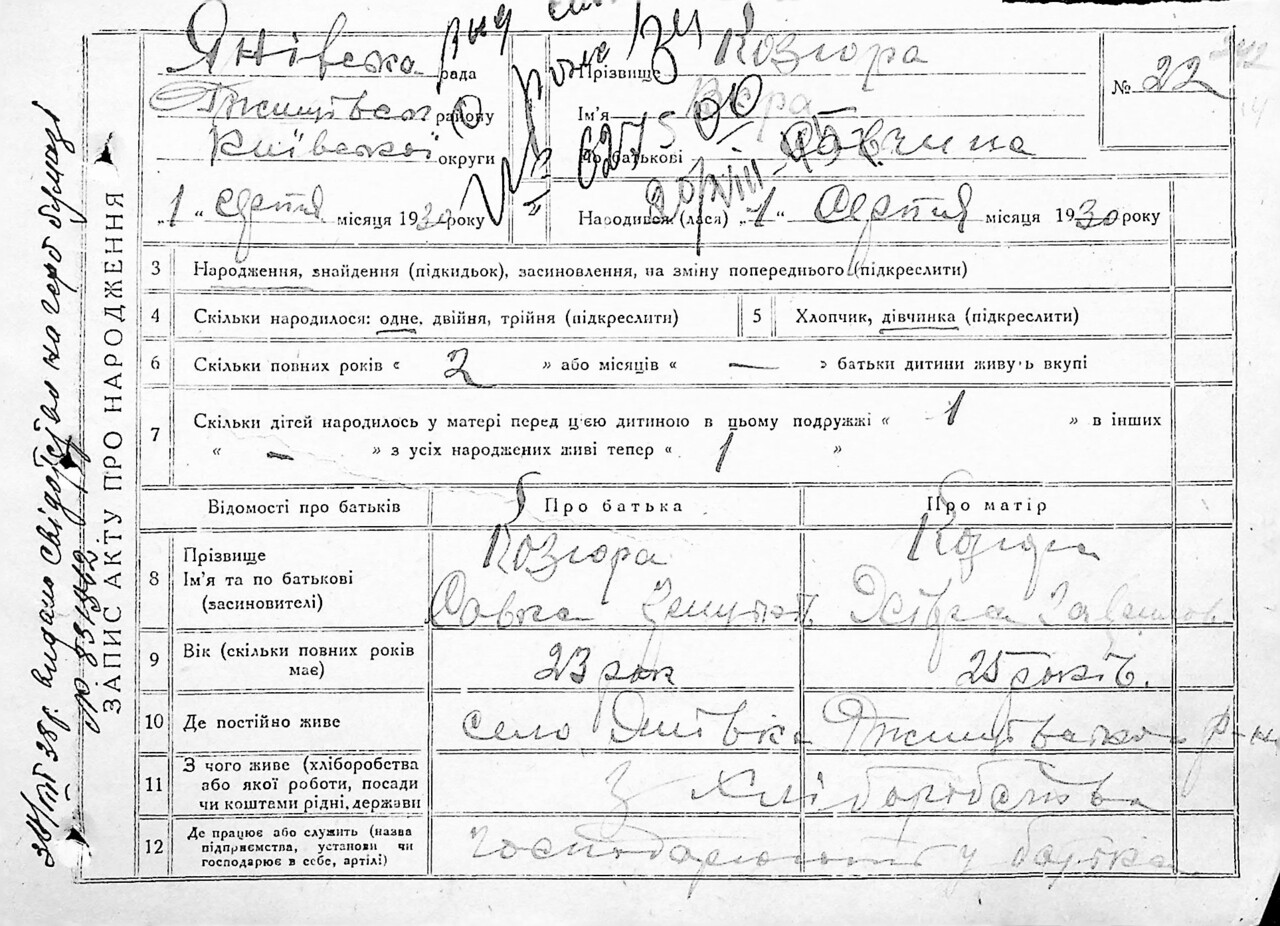 Янівська рада
району
Київської округи
„1“ серпня місяця 1930 року
Прізвище Козюра
Ім'я Вера
По батькові Савчина
Народився (лася) „1“ Серпня місяця 1930 року
№ 22
ЗАПИС АКТУ ПРО НАРОДЖЕННЯ
видано свідоцтво на герб бумаз
3 Народження, знайдення (підкидьок), засиновлення, на зміну попереднього (підкреслити)
4 Скільки народилося: одне, двійня, трійня (підкреслити)
5 Хлопчик, дівчинка (підкреслити)
6 Скільки повних років « 2 » або місяців « — » батьки дитини живуть вкупі
7 Скільки дітей народилось у матері перед ц'єю дитиною в цьому подружжі « 1 » в інших
« – » з усіх народжених живі тепер « 1 »
Відомості про батьків Про батька Про матір
8 Прізвище Козюра Козюра
Ім'я та по батькові
(засиновителі) Савка
9 Вік (скільки повних років
має) 23 рок 25 років.
10 Де постійно живе село Янівка
11 З чого живе (хліборобства
або якої роботи, посади
чи коштами рідні, держави З Хліборобства
12 Де працює або служить (назва
підприємства, установи чи
господарює в себе, артілі) у батька